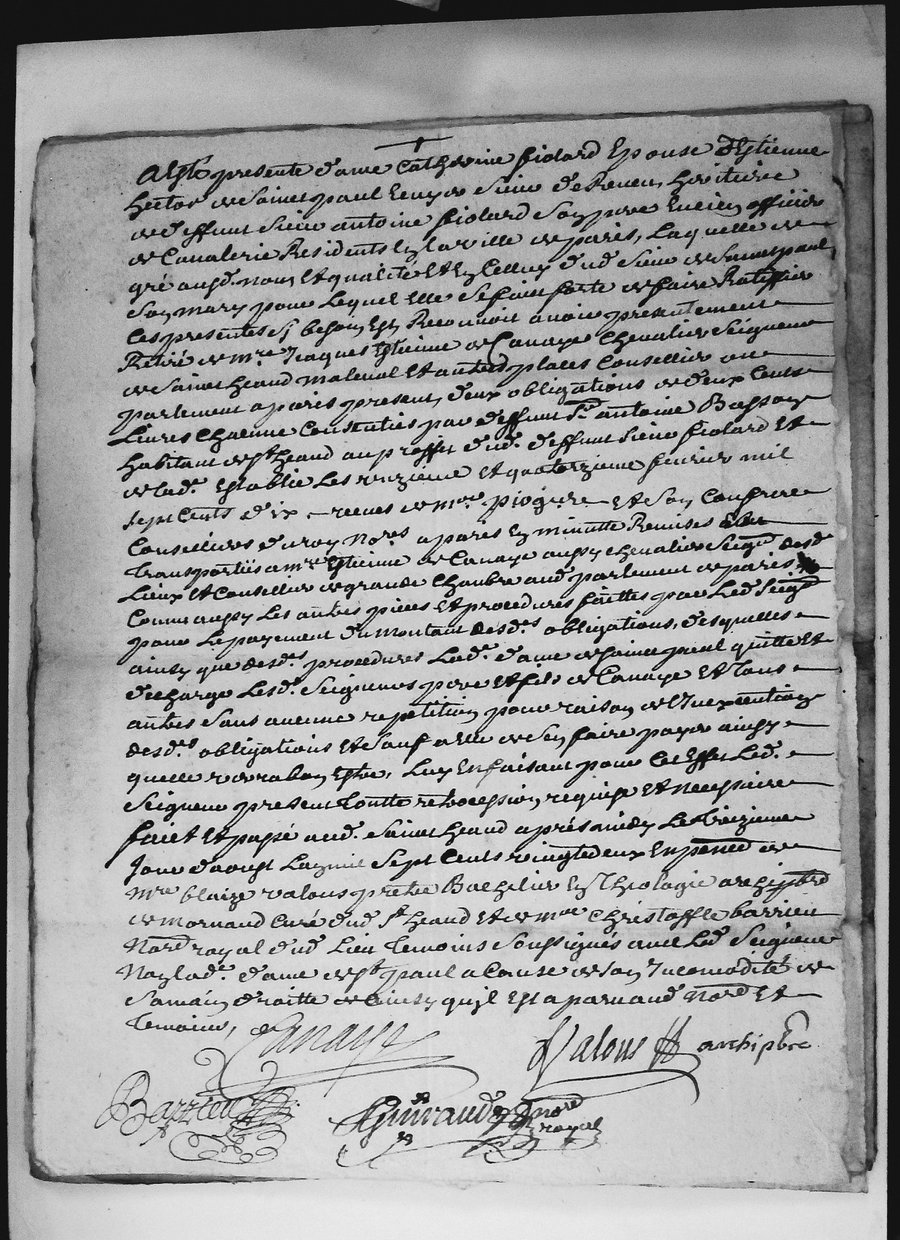 A Esté presente dame Catherine fiolard Epouse d'Estienne
hector de Saint paul Ecuyer Sieur de heritiere
de deffunt Sieur antoine fiolard Son pere Encien officier
de Cavalerie Residents En la ville de paris, Laquelle de
gré aud. nom Et qualité Et En Celluy dud. Sieur de Saint paul
Son mary pour Lequel Elle Se fait forte de faire Ratiffier
Ces presentes Sy besoin Est, Reconnoit avoir presentement
Retiré de mre Jacques Estienne de Canaye Chevalier Seigneur
de Saint heand maleval Et autres places Conseiller au
parlement a paris present, deux obligations de deux Cents
Livres Chacune Consenties par deffunt Sr antoine Bassoy
habitant de St heand au proffit dud. deffunt Sieur fiolard Et
de lad. Establie Les onzieme Et quatorzieme fevrier mil
Sept Cents dix receues de mre piogere Et Son Confrere
Conseillers du roy nores a paris En minutte Remises
transportées a mre Estienne de Canaye aussy chevalier Seigr desd.
Lieux Et Conseiller de grande Chambre aud. parlement de paris
Comme aussy Les autres pieces Et procedures faittes par Led. Seigr
pour Le payement du montant desd.s obligations, desquelles
ainsy que desd.s procedures Lad. dame de Saint paul quitte Et
decharge Lesd. Seigneurs pere Et fils de Canaye Et tous
autres Sans aucune repetition pour raison de L'inexecution
desd.s obligations Et Sauf a Elle de S'en faire payer ainsy
quelle verra bon Estre, Luy En faisant pour Cet Effet Led.
Seigneur present toutte retrocession requise Et necessaire
fait Et passé aud. Saint heand aprés midy Le treizieme
Jour d'aoust L'an mil Sept Cents vingt deux En presence de
mre blaize valous pretre Bachelier En theologie archiptre
de mornand Curé dud. St heand Et de mre Christoffle barrieu
Nore royal dud. Lieu temoins Soussignés avec Led. Seigneur
Non lad. dame de St paul a Cause de Son Incomodité de
Sa main droitte de Ainsy qu'il Est aparu aud. Nore Et
temoins,
Canaye
Valous archiptre
Barrieu
Guiraud nore
royal